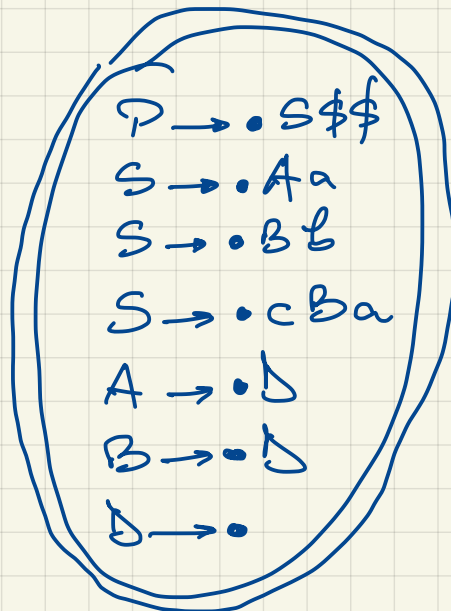 P → • S$$
S → • Aa
S → • Bb
S → • cBa
A → • D
B → • D
D → •